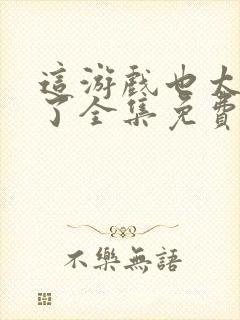 這游戲也太
了全集免費
不樂無語